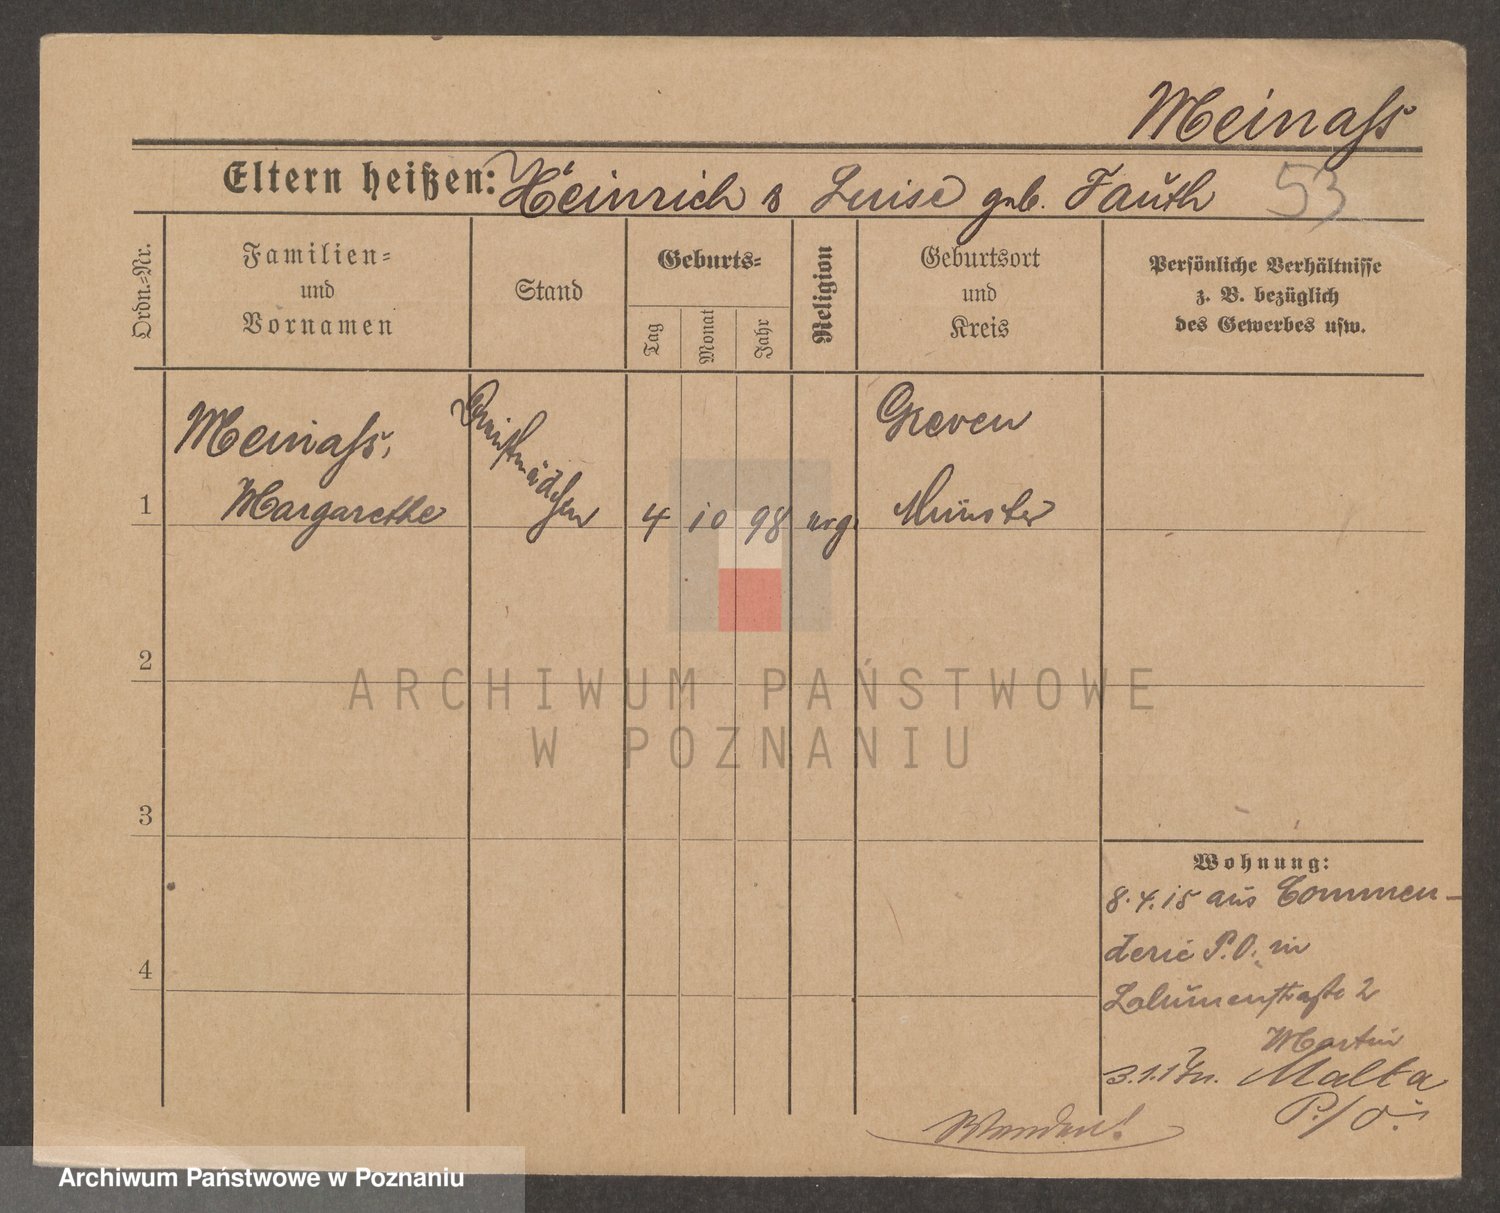 Meinaß
Eltern heißen: Heinrich & Luise geb. Fauth 53
Ordn.=Nr.
Familien=
und
Vornamen
Stand
Geburts=
Tag
Monat
Jahr
Religion
Geburtsort
und
Kreis
Persönliche Verhältnisse
z. B. bezüglich
des Gewerbes usw.
Meinaß,
1 Margarethe
Dienstmädchen
4 10 98 evg.
Greven
Münster
2
3
4
ARCHIWUM PAŃSTWOWE
W POZNANIU
Wohnung:
8.4.15 aus Commen-
derie P.O. in
2
Martin
Malta
P./O.
Wenden!
Archiwum Państwowe w Poznaniu